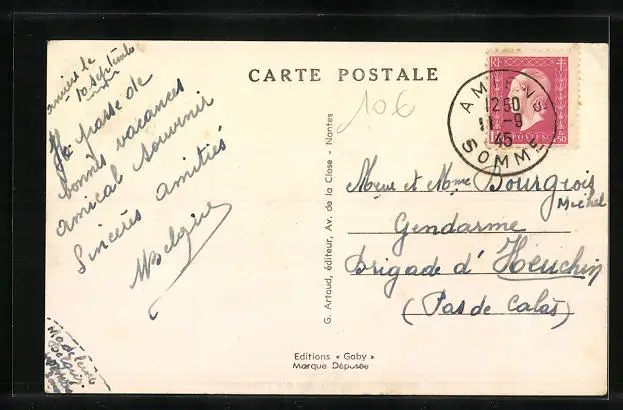 Amiens le
10 septembre
Je passe de
bonnes vacances
amical souvenir
Sincères amitiés
CARTE POSTALE
10 €
RF
AMIENS
12 50
11 -9
45
SOMME
POSTES
1F50
G. Artaud, éditeur, Av. de la Close - Nantes
Meur et Mme Bourgeois
Michel
Gendarme
Brigade d' Heuchin
(Pas de Calais)
Editions « Gaby »
Marque Déposée
Madeleine